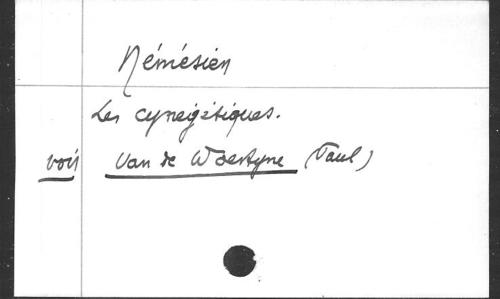 Némésien
Les cynégétiques.
voir Van de Woestyne (Paul)